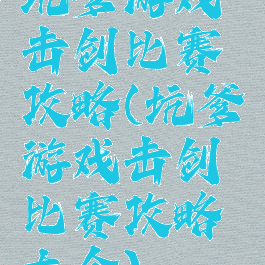 坑爹游戏
击剑比赛
攻略(坑爹
游戏击剑
比赛攻略
大全)